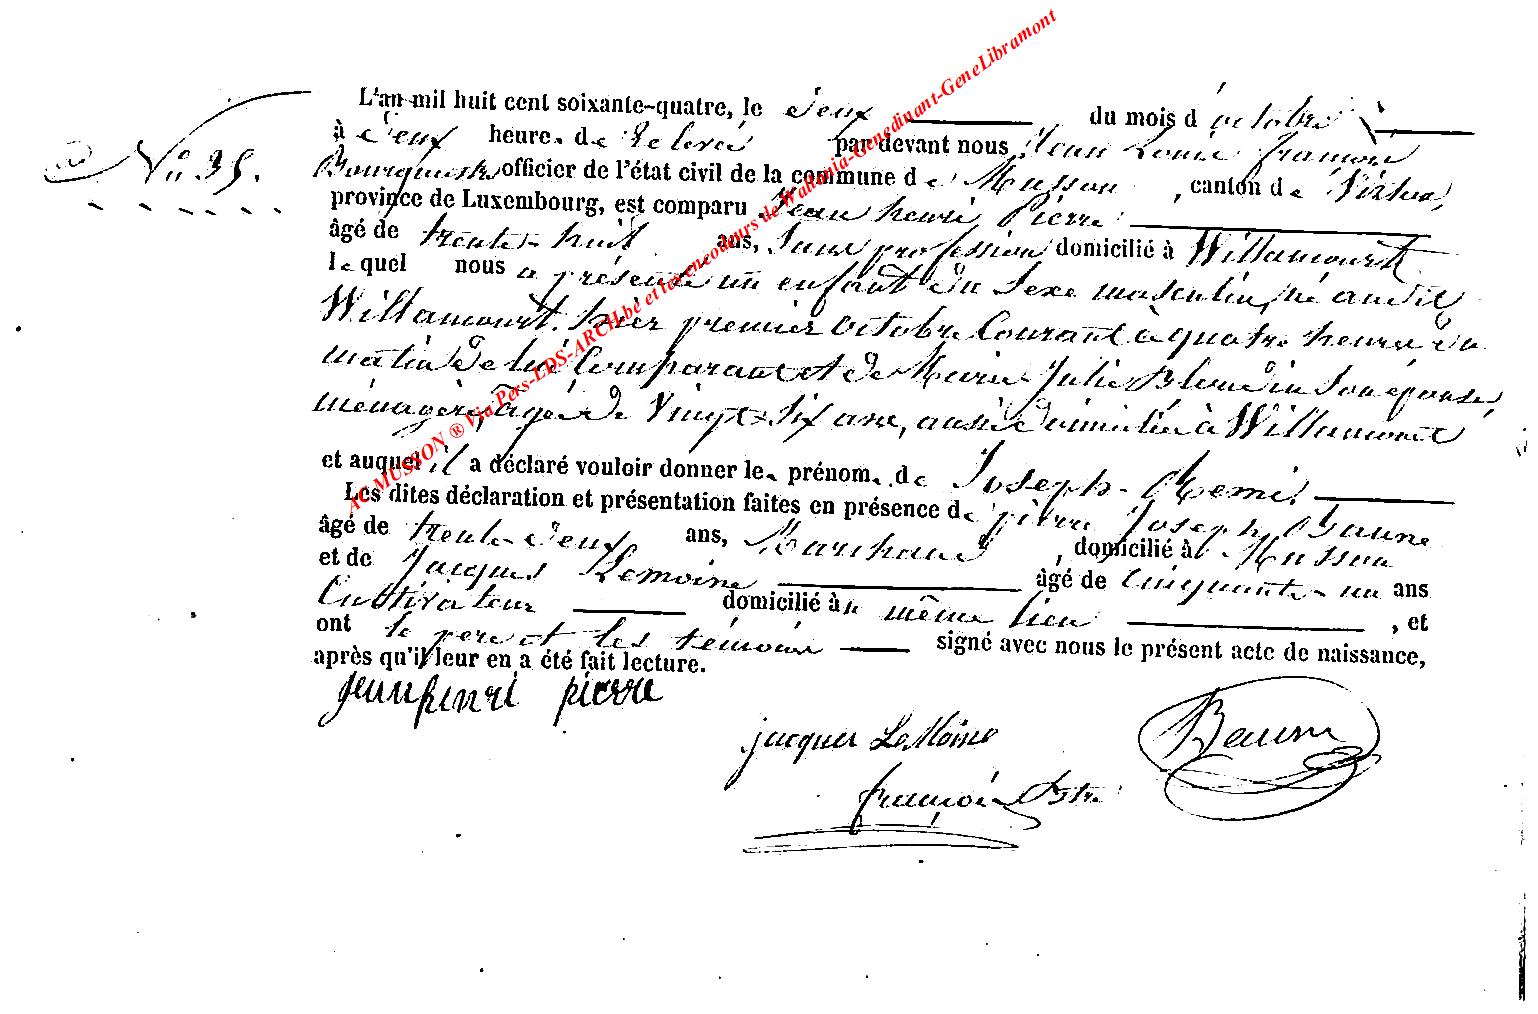 L'an mil huit cent soixante-quatre, le deux du mois d'octobre
à deux heures de relevée par devant nous Jean Louis françois
N° 35. officier de l'état civil de la commune de Musson, canton de Virton,
province de Luxembourg, est comparu Jean henri Pierre
âgé de trente-huit ans, sans profession domicilié à Willancourt
lequel nous a présenté un enfant du Sexe masculin, né audit
Willancourt, hier premier octobre Courant à quatre heures du
matin de lui Comparant et de Marie Julie Blondin Son épouse,
ménagère, âgée de Vingt-Six ans, aussi domiciliée à Willancourt
et auquel il a déclaré vouloir donner les prénoms de Joseph-Remi.
Les dites déclaration et présentation faites en présence de pierre Joseph Baune
âgé de trente-deux ans, Marchand, domicilié à Musson
et de Jacques Lemoine âgé de Cinquante-un ans
Cultivateur domicilié au même lieu, et
ont le père et les témoins signé avec nous le présent acte de naissance,
après qu'il leur en a été fait lecture.
jean henri pierre
jacques LeMoine
Baune
françois
AC MUSSON ® Via Pers-LDS-ARCH.be et les encodeurs de Wallonia-Genedinant-GeneLibramont